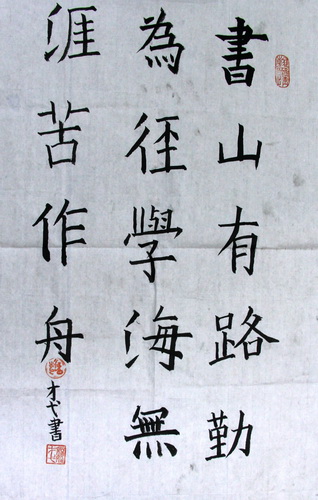 書山有路勤
為徑學海無
涯苦作舟
書